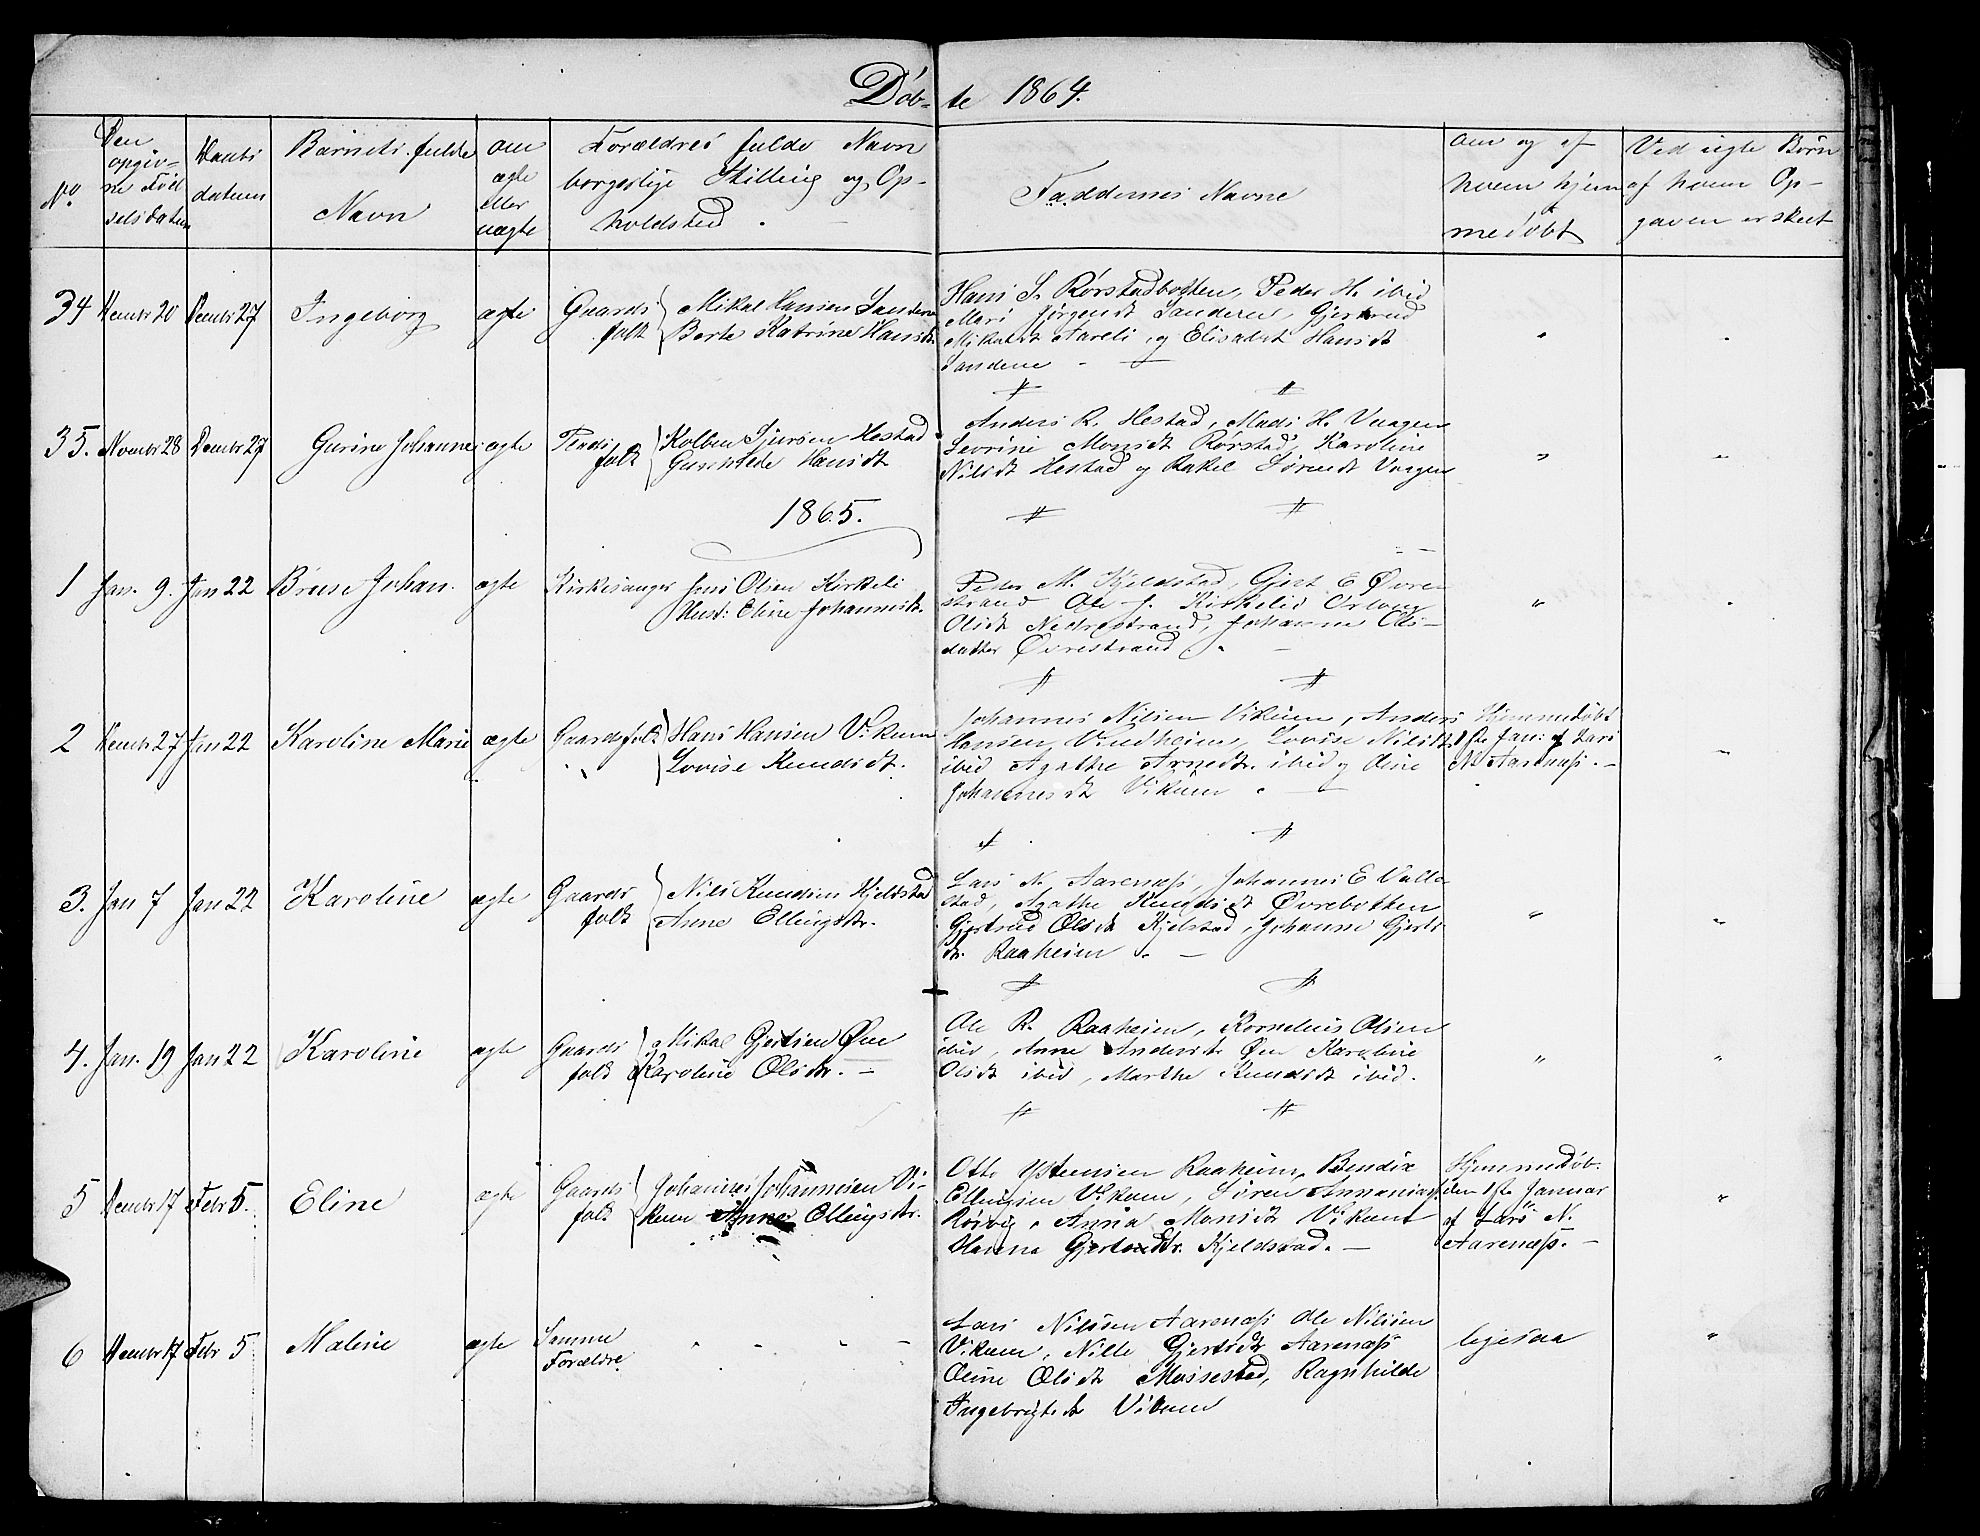 Døb- te 1864.
No
Den opgiv-
ne Fød
selsdatum
Daabs
datum
Barnets fulde
Navn
om
ægte
eller
uægte
Forældres fulde Navn
borgerlige Stilling og Op-
holdsted.
Faddernes Navne
om og af
hvem hjem
medøbt
Ved uægte Børn
af hvem Op-
gaven er skeet
34 Decmbr 20 Decmbr 27 Ingeborg ægte Gaards
folk
Mikal Hansen Sandene
Berte Katrine Hansdtr
Hans S. Rørstadbotten, Peder H. ibid
Mari Jørgensdt Sandene, Gjertrud
Mikalsdt Aareli, og Elisabet Hansdt
Sandene
35. Novmbr 28 Decmbr 27 Gurine Johanne ægte
folk
Kolben Sjursen Hestad
Hansdt
Anders R. Hestad, Mads H. Vaagen
Severine Monsdt Rørstad, Karoline
Nilsdt Hestad og Rakel Sørensdt Vaagen
1865.
1 Jan. 9. Jan 22 Bruse Johan. ægte Kirkesanger Jens Olsen Kirkeli
Hust: Eline Johannesdt.
Peder M. Kjeldstad, Gjert E Øvre-
strand Ole J. Kirkelid
Olsdt Nedrestrand, Johanne Ols-
datter Øvrestrand
2 Decmbr 27 Jan 22 Karoline Marie ægte Gaardsfolk Hans Hansen Vikum
Lovise Knudsdt.
Johannes Nilsen Vikum, Anders
Hansen Vindheim, Lovise Nilsdt
ibid Agathe Arnedtr. ibid og Oline
Johannesdt Vikum
Hjemmedøbt
1ste Jan: af Lars
N. Aarenæss.
3. Jan 7 Jan 22 Karoline ægte Gaards
folk
Nils Knudsen Kjeldstad
Anne Ellingsdtr.
Lars N. Aarenæss, Johannes E Valle-
stad, Agathe Knudsdt Øvrebotten
Gjertrud Olsdt Kjelstad, Johanne Gjerts
dt. Raaheim
4. Jan. 19 Jan 22 Karoline ægte Gaards
folk
Mikal Gjertsen Øen
Karoline Olsdtr.
Ole R. Raaheim, Kornelius Olsen
ibid, Anne Andersdt Øen Karoline
Olsdt ibid, Marthe Knudsdt ibid.
5 Decmbr 17 Febr 5. Eline ægte Gaards
folk
Johannes Johannesen Vi-
kum Anne Ellingsdtr.
Otto Ystensen Raaheim, Bendix
Ellingsen Vikum, Søren Annanias
Rørvig, Anna Monsdt Vikum
Hanna Gjertsdtr. Kjeldstad.
Hjemmedøb.
den 1ste Januar
af Lars N.
Aarenæss.
6 Decmbr 17 Febr 5 Maline ægte Samme
Forældre
Lars Nilsen Aarenæss Ole Nilsen
Vikum, Nille Gjertsdt Aarenæss
Oline Olsdt Massestad, Ragnhilde
Ingebrigtsdt Vikum
ligesaa